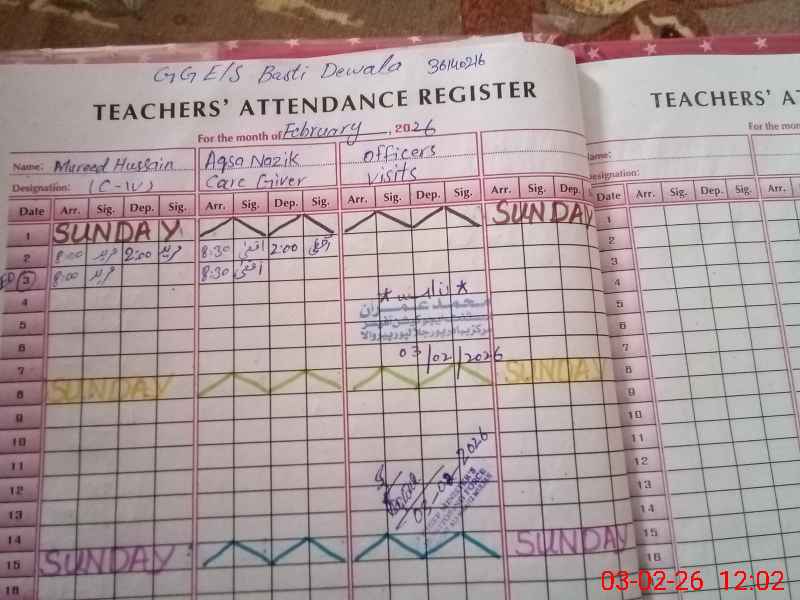 GGE/S Basti Dewala 36140216
TEACHERS' ATTENDANCE REGISTER
For the month of February, 2026
Name: Mureed Hussain Aqsa Nazik Officers
Designation: (C-IV) Care Giver Visits
Date Arr. Sig. Dep. Sig. Arr. Sig. Dep. Sig. Arr. Sig. Dep. Sig. Arr. Sig. Dep. Sig.
1 SUNDAY SUNDAY
2 8:00 2:00 8:30 2:00
3 8:00 8:30
4
5
6
7 03/02/2026
8 SUNDAY SUNDAY
9
10
11
12
13
14
15 SUNDAY SUNDAY
16
محمد عمران
TEACHERS' AT
For the mon
ame:
esignation:
Date Arr. Sig. Dep. Sig. Arr.
1
2
3
4
5
6
7
8
9
10
11
12
13
14
15
16
03-02-26 12:02